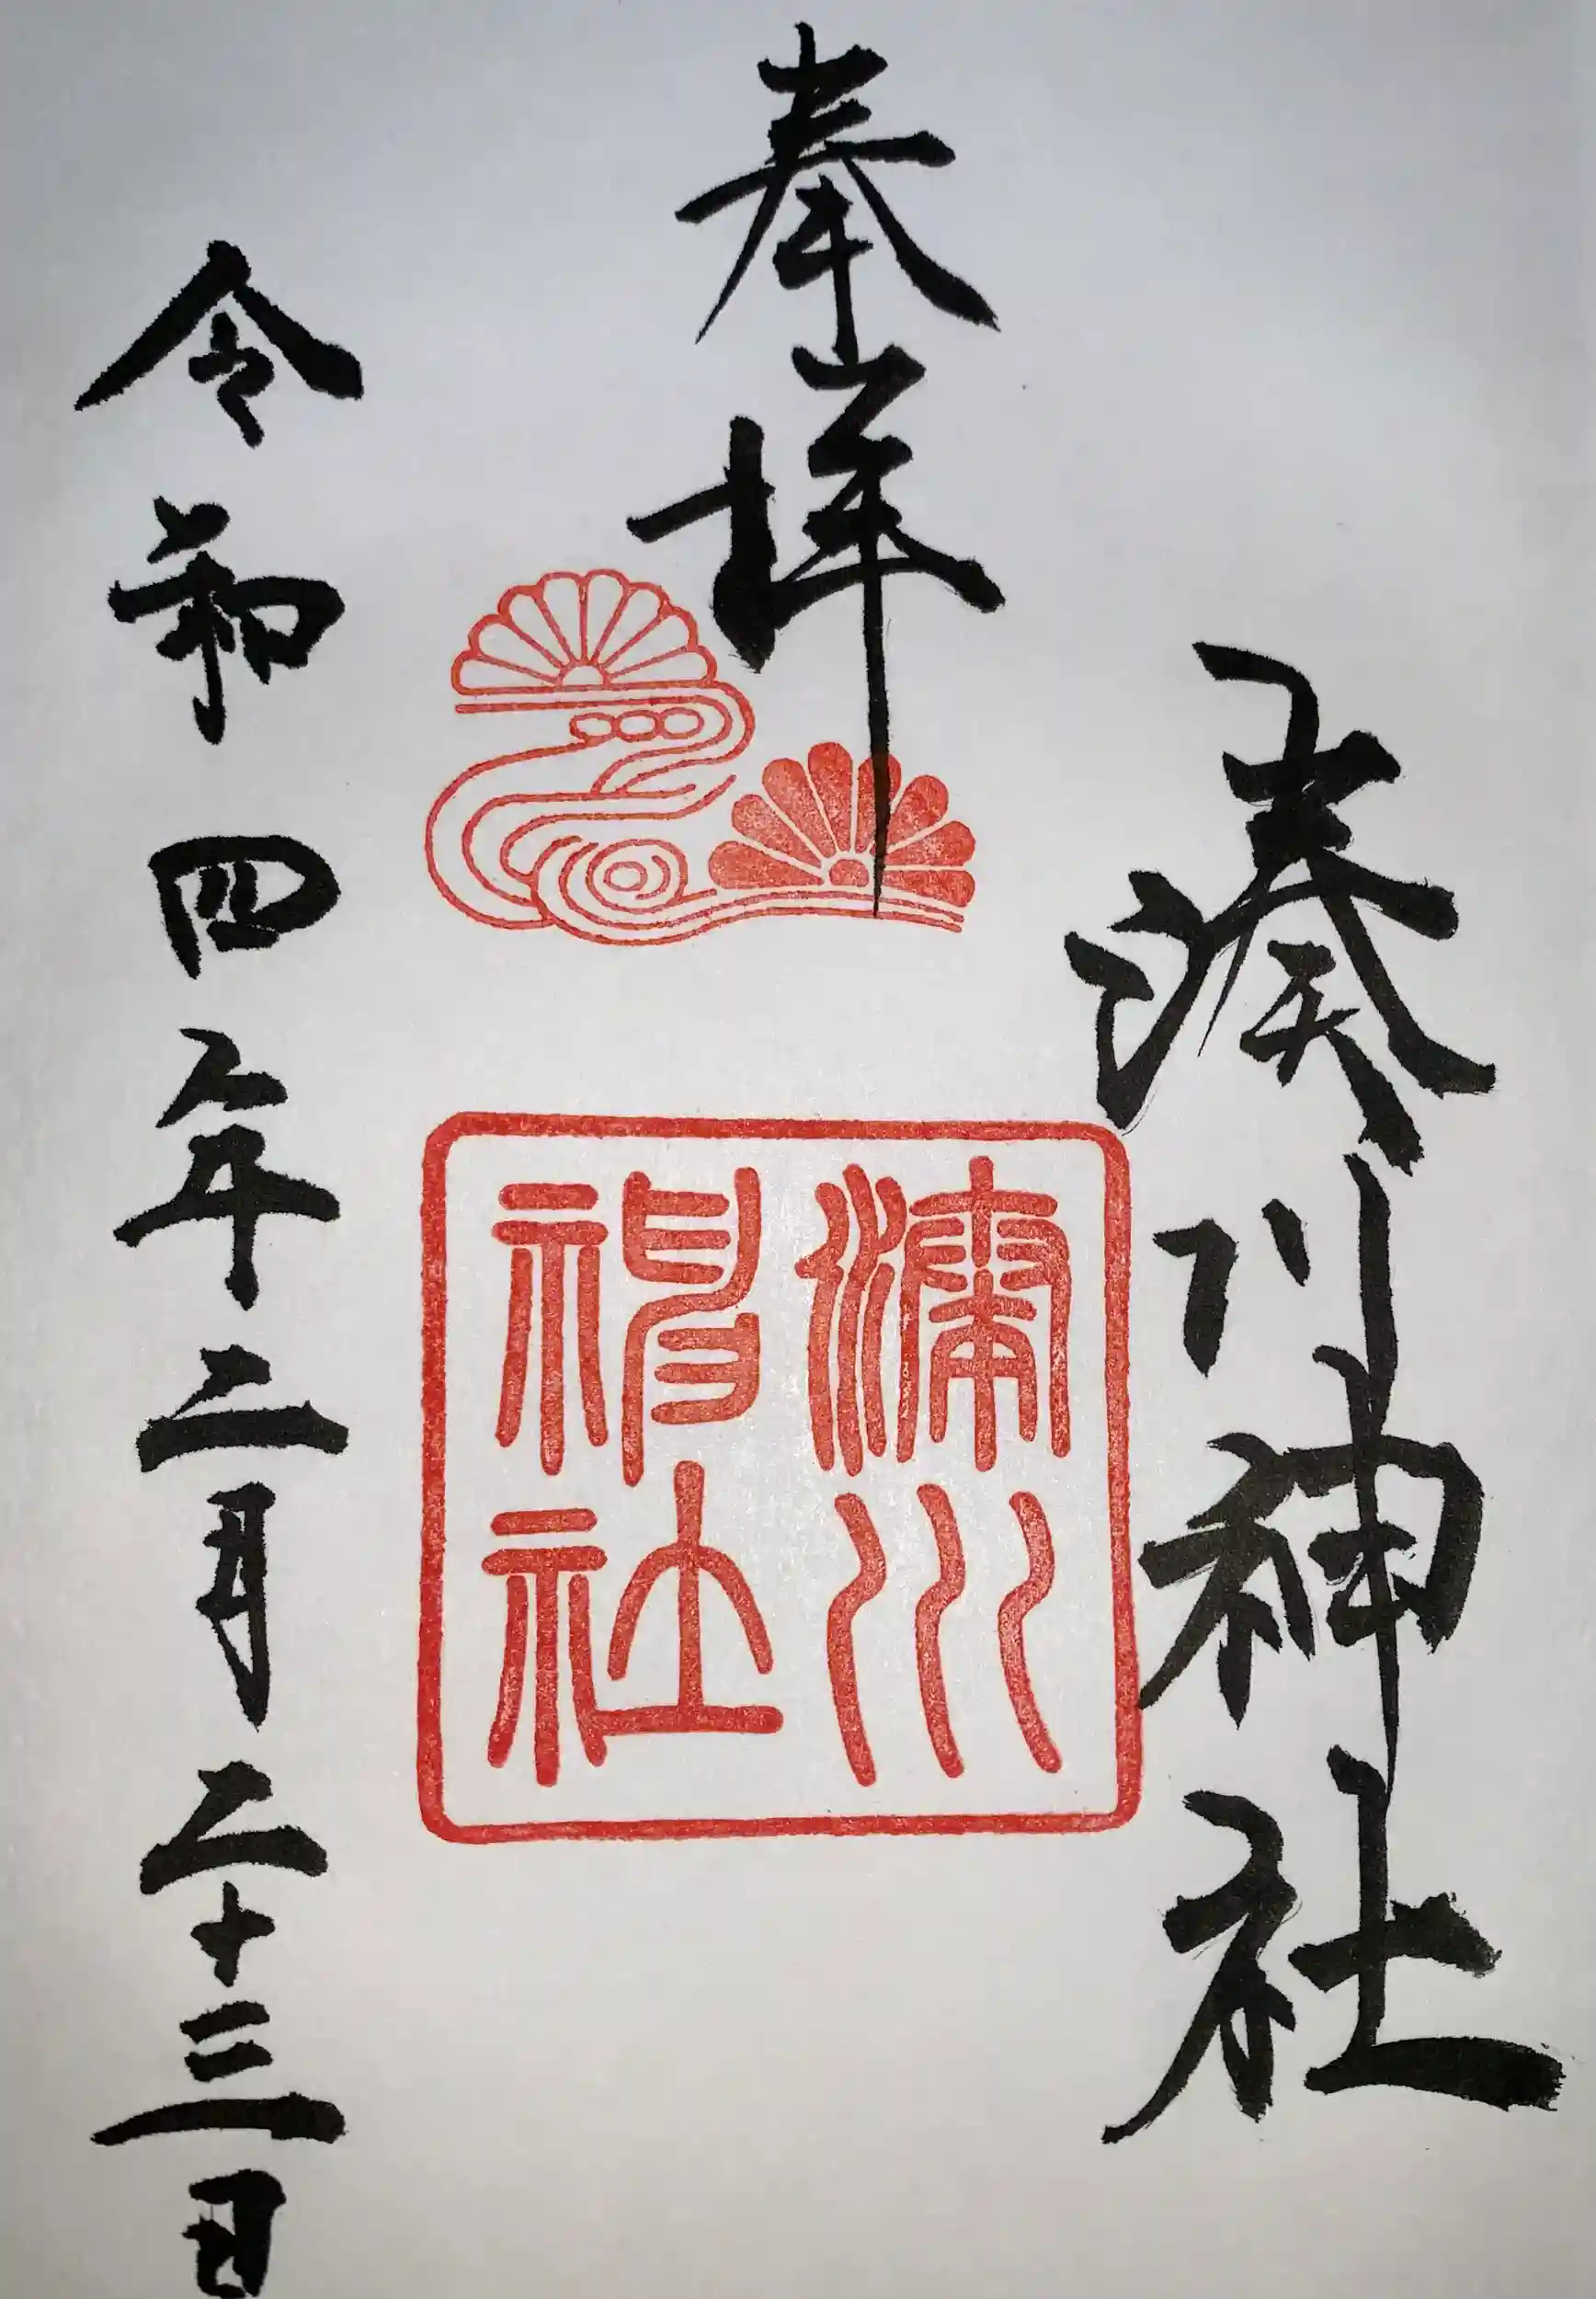 湊川神社
奉拝
湊川
神社
令和四年二月二十三日